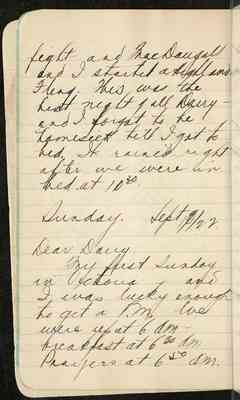 fight and MacDougall
and I started a Highland
Fling. This was the
best night of all Dairy -
and I forgot to be
homesick till I got to
bed. It rained right
after we were in
bed at 10 30
Sunday. Sept /22
Dear Dairy.
My first Sunday
in and
I was lucky enough
to get a P.M. We
were up at 6 am -
breakfast at 6 am
Prayers at 6 50 am.